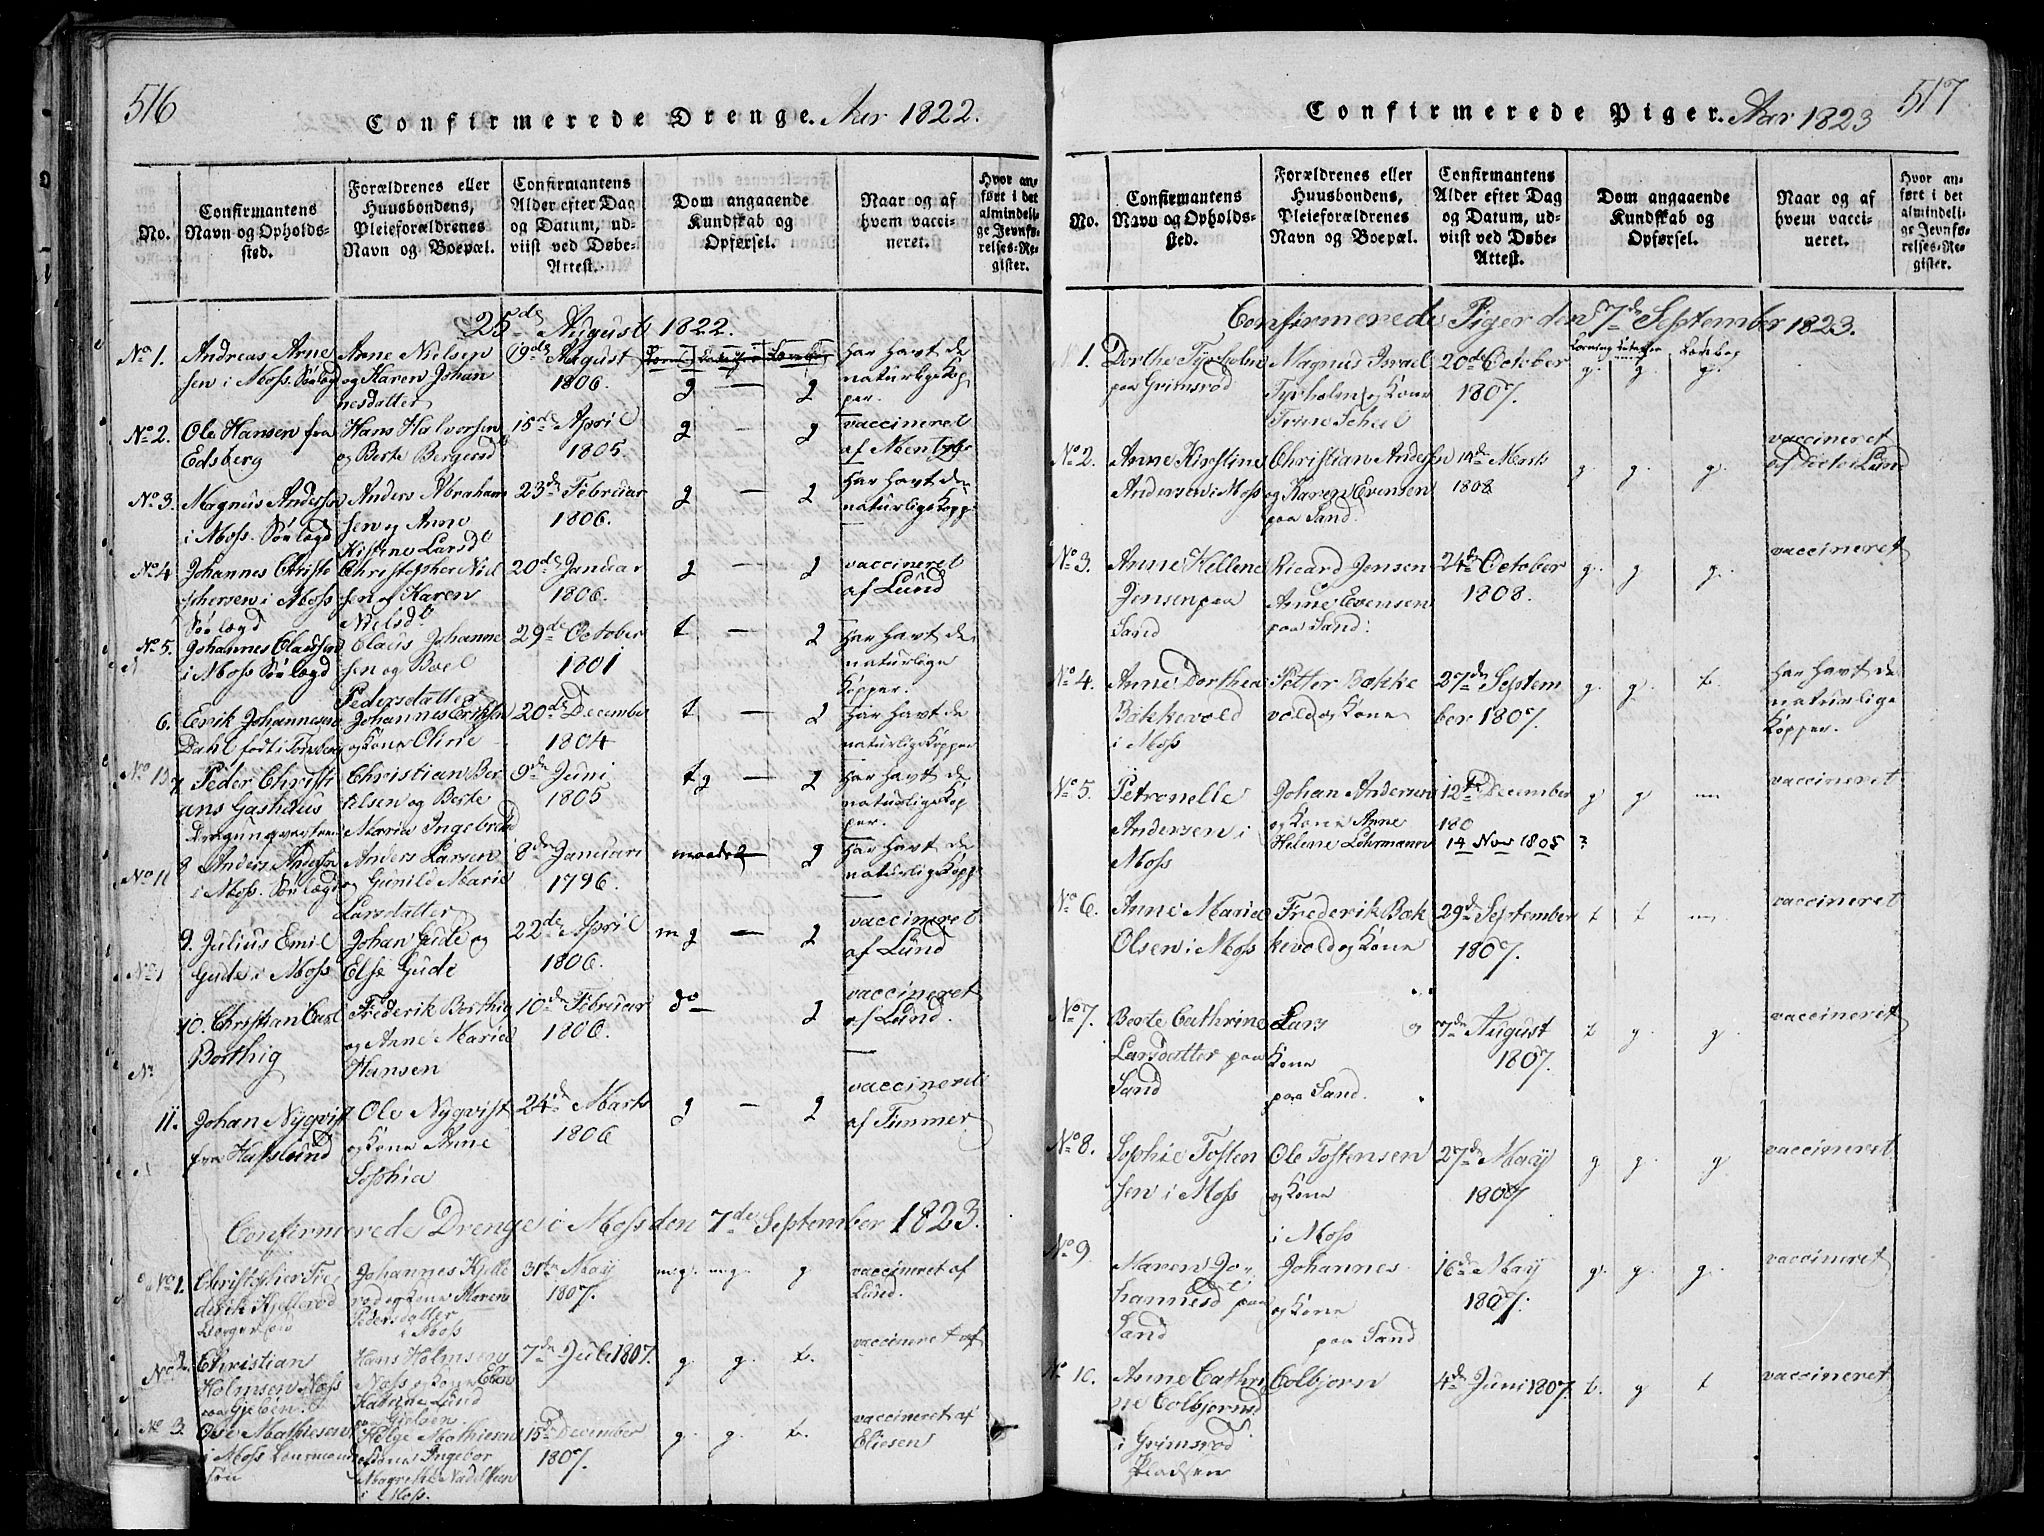 516
Confirmerede Drenge. Aar 1822.
No.
Confirmantens
Navn og Opholds-
sted.
Forældrenes eller
Huusbondens,
Pleieforældrenes
Navn og Boepæl.
Confirmantens
Alder efter Dag
og Datum, ud-
viist ved Døbe-
Attest.
Dom angaaende
Kundskab og
Opførsel.
Naar og af
hvem vacci-
neret.
Hvor an-
ført i det
almindeli-
ge Jevnfø-
relses-Re-
gister.
25de August 1822.
No 1.
Andreas Arne
sen i Moss. Søelægd
Arne Nielsen
og Karen Johan
nesdatter
19de August
1806.
g — g
har havt de
naturlige Kop
per.
No 2.
Ole Hansen fra
Edsberg
Hans Halvorsen
og Berte Bergersd
15de April
1805.
g — g
vaccineret
af Mentz
No 3.
Magnus Anderssen
i Moss. Søelægd
Anders Abraham
sen og Anne
Kistine Larsd
23de Februar
1806.
g — g
har havt de
naturlige Kopp
No 4
Johannes Christo
phersen i Moss
Søelægd
Christopher Niel
sen og Karen
Nielsd
20de Januar
1806.
g — g
vaccineret
af Lund
No 5.
Johannes Claussen
i Moss Søelægd
Claus Johanne
sen og Boel
Pedersdatter
29de October
1801
t — g
har havt de
naturlige
Kopper.
6.
Erik Johannesen
Dahl født i Tønsberg
Johannes Eriksen
og Kone Oline
20de December
1804
t — g
har havt de
naturlige Kopper
No 13
7.
Peder Christi
ans Gashuus
Christian Ber
telsen og Berte
Maria Ingebretsd
9de Juni
1805
tg — g
har havt de
naturlige Kop
per.
No 11
8
Anders Anderssen
i Moss. Søelægd
Anders Larsen
og Gunild Marie
Larsdatter
8de Januari
1796.
maadel — g
har havt de
naturlige Kopp
9.
No 1
Julius Emil
Gude i Moss
Johan Gude og
Else Gude
22de April
1806.
mg — g
vaccineret
af Lund
10.
Christian Carl
Borthig
Frederik Borthig
og Anne Marie
Hansen
10de Februar
1806.
do — g
vaccineret
af Lund.
No
11.
Johan Nyqvist
fra Hafslund
Ole Nyqvist
og Kone Anne
Sophia
24de Marts
1806
g — g
vaccineret
af Timmer
Confirmerede Drenge i Moss den 7de September 1823.
No 1.
Christopher Fre
derik Kjellerød
Johannes Kjelle
rød og Kone Maren
Pedersdatter
i Moss
31te May
1807.
mg. mg. g
vaccineret af
Lund.
No 2.
Christian
Holmsen Moss
paa Gjelsen.
Hans Holmsen
Moss og Kone Elisa
Katrine Lund
paa Gjelsen.
7de Juli 1807.
g. g. t.
vaccineret af
No 3.
Ole Mathiesen
i Moss
Helge Mathiesen
og Kone Ingebor
Magrethe
i Moss.
15de December
1807.
g. g. t.
vaccineret af
Eliesen
517
Confirmerede Piger. Aar 1823
No.
Confirmantens
Navn og Opholds-
sted.
Forældrenes eller
Huusbondens,
Pleieforældrenes
Navn og Boepæl.
Confirmantens
Alder efter Dag
og Datum, ud-
viist ved Døbe-
Attest.
Dom angaaende
Kundskab og
Opførsel.
Naar og af
hvem vacci-
neret.
Hvor an-
ført i det
almindeli-
ge Jevnfø-
relses-Re-
gister.
Confirmerede Piger den 7de September 1823.
1.
Dorthe Tyrholm
paa Grimsrød
Magnus Israel
Tyrholm og Kone
Trine Scheel
20de October
1807.
g. g. g.
No 2.
Anne Kirstine
Andersen i Moss
Christian Anderssen
og Karen Evensen
paa Sand.
14de Marts
1808
g. g. g.
vaccineret
af Doctor Lund
No 3.
Anne Hellene
Jensen paa
Sand
Ricard Jensen
Anne Evensen
paa Sand.
24de October
1808.
g. g g.
vaccineret
No 4.
Anne Dorthea
Bakkevold
i Moss
Petter Bakke
vold og Kone
27de Septem
ber 1807.
g. g. t.
har havt de
naturlige
Kopper.
No 5.
Petronelle
Andersen i
Moss
Johan Andersen
og Kone Anne
Helene Lohrmann
12te December
180
14 Nov 1805 ?
g g
vaccineret
No 6.
Anne Marie
Olsen i Moss
Frederik Bak
kevold og Kone
29de September
1807.
t t
vaccineret
No 7.
Berte Cathrine
Larsdatter paa
Sand
Lars og
Kone
paa Sand.
7de August
1807.
t g. g.
vaccineret
No 8.
Sophie Tosten
sen i Moss
Ole Tostensen
og Kone
i Moss
27de May
1807
g g. g
vaccineret
No 9
Maren Jo-
hannesd paa
Sand
Johannes
og Kone
paa Sand
16de May
1807.
g. g. g.
vaccineret
No 10.
Anne Cathri
ne Colbjørnsd
i Grimsrød
Pladsen
Colbjørn
4de Juni 1807.
t. g t
vaccineret